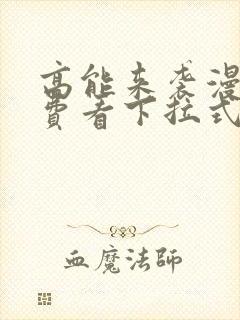 高能来袭漫
费看下拉式
血魔法師